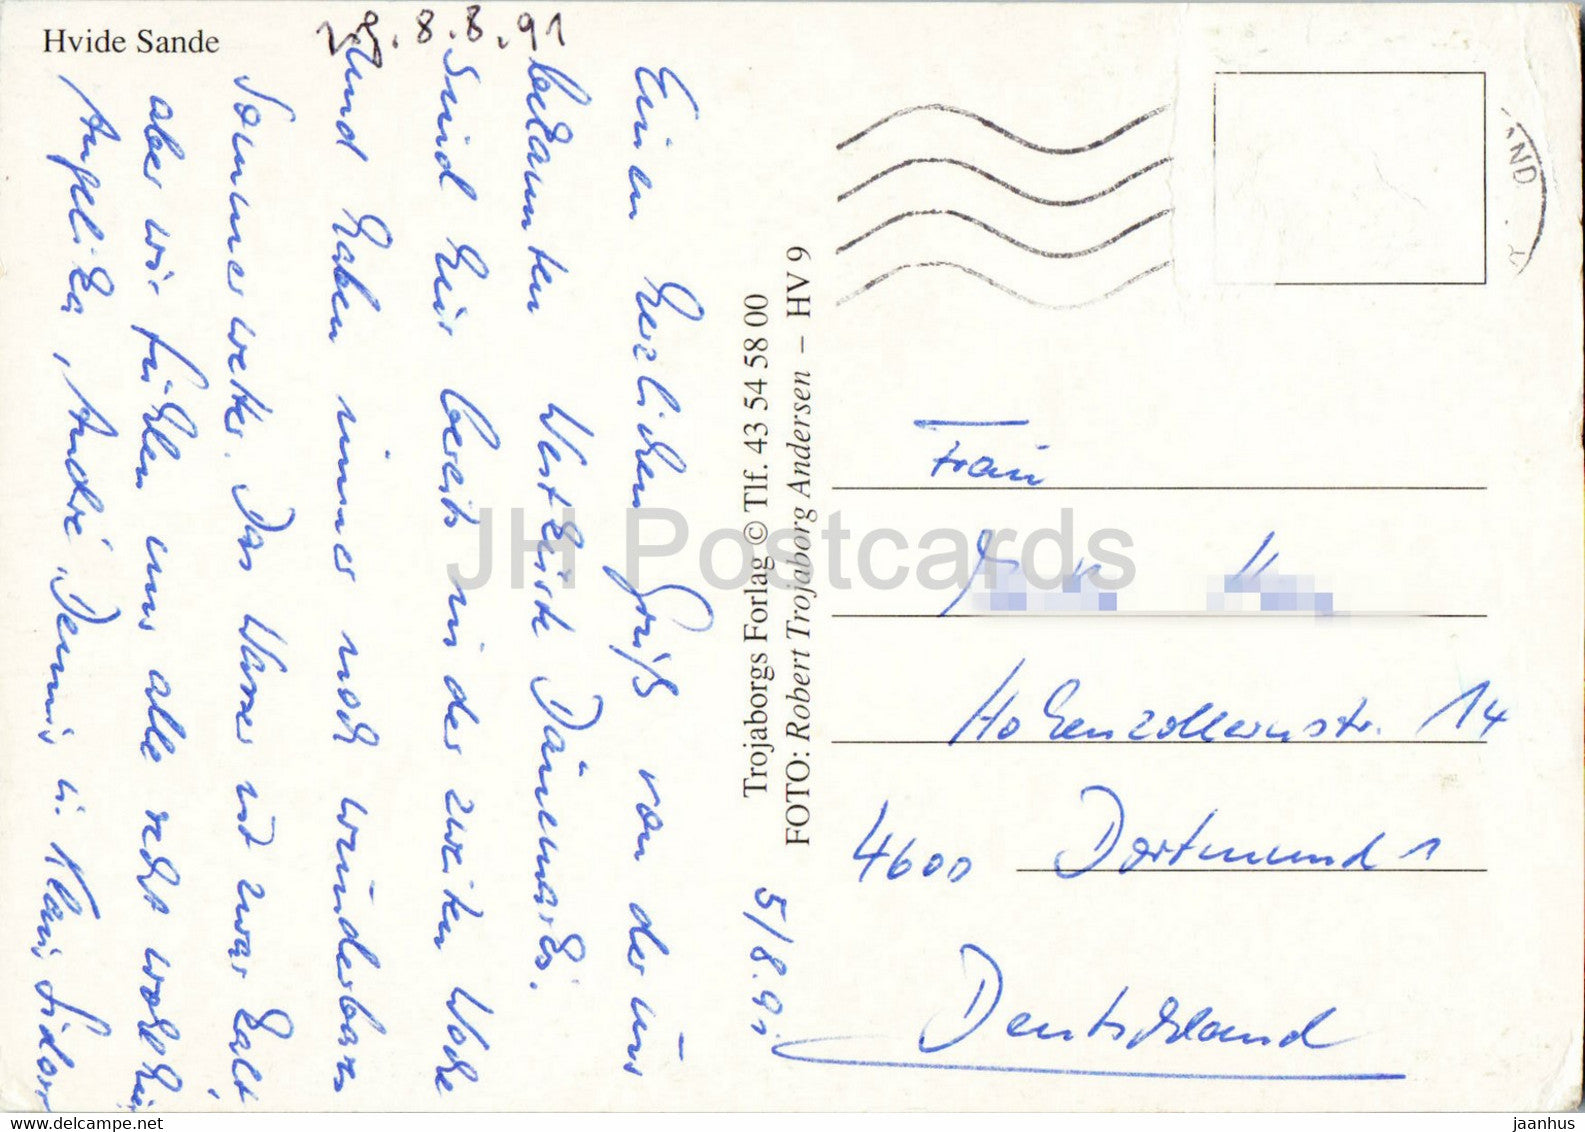 Hvide Sande
8.8.91
Einen herzlichen Gruß von der uns
bekannten Westküste Dänemarks.
Sind hier bereits in der zweiten Woche
und haben immer noch wunderbares
Sommerwetter. Das Wasser ist zwar kalt,
aber wir fühlen uns alle recht wohl hier
Angelika, André, Dennis u. Klaus
5/8.91
Trojaborgs Forlag © Tlf. 43 54 58 00
FOTO: Robert Trojaborg Andersen – HV 9
Frau
Hohenzollernstr. 14
4600 Dortmund 1
Deutschland
JH Postcards
www.delcampe.net
jaanhus